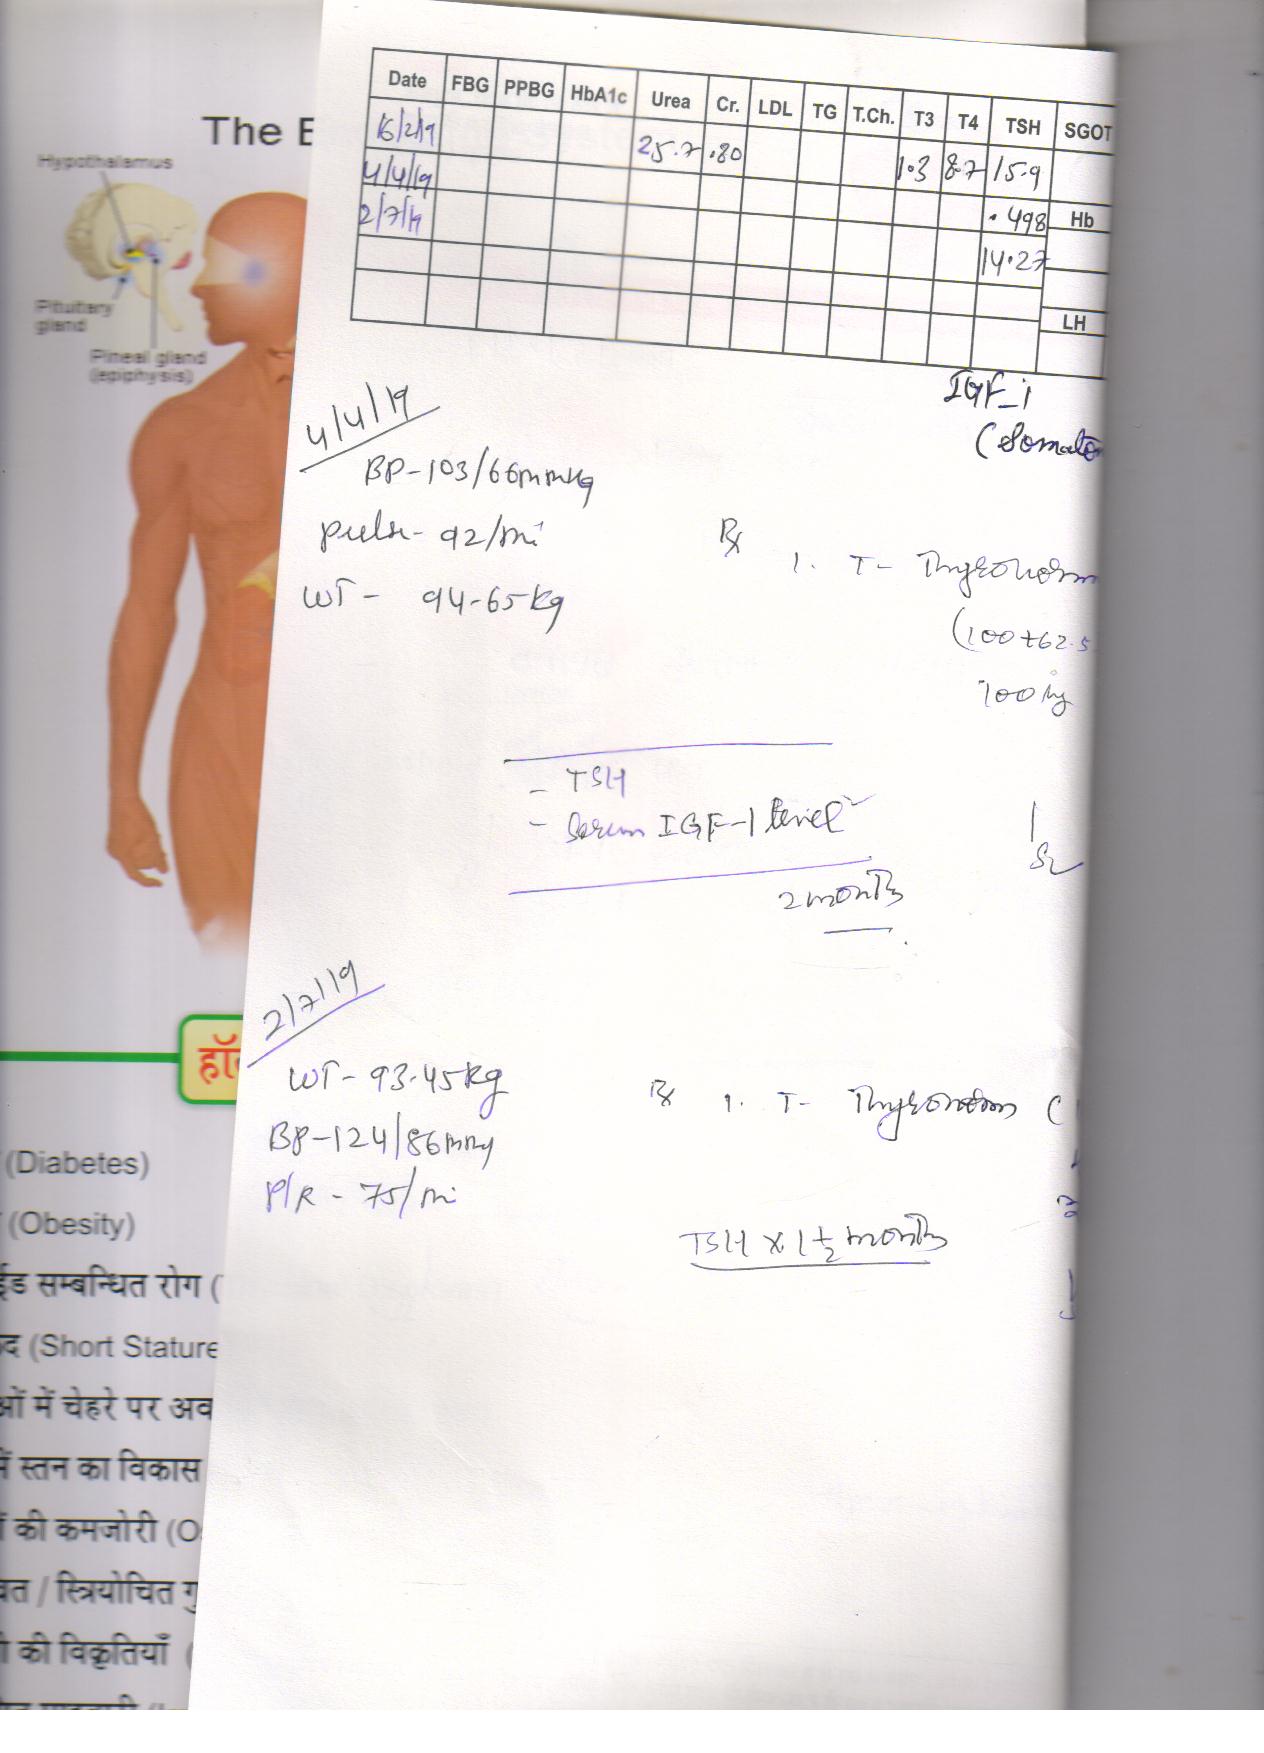 The E
Hypothalamus
Pituitary
gland
Pineal gland
(epiphysis)
Date FBG PPBG HbA1c Urea Cr. LDL TG T.Ch. T3 T4 TSH SGOT
16/2/19 25.7 .80 1.3 8.7 15.9
4/4/19 .498 Hb
2/7/19 14.27
LH
IGF-1
(Somato
4/4/19
BP-103/66mmHg
pulse- 92/mi
WT- 94.65kg
Rx 1. T- Thyronorm
(100+62.5
100
- TSH
- Serum IGF-1 level
2 months
2/7/19
WT- 93.45kg
BP-124/86mmHg
P/R - 75/mi
Rx 1. T- Thyronorm (
TSH x 1 1/2 months
(Diabetes)
(Obesity)
ईड सम्बन्धित रोग (
(Short Stature
ओं में चेहरे पर अव
में स्तन का विकास
की कमजोरी (O
/ स्त्रियोचित गु
की विकृतियाँ (